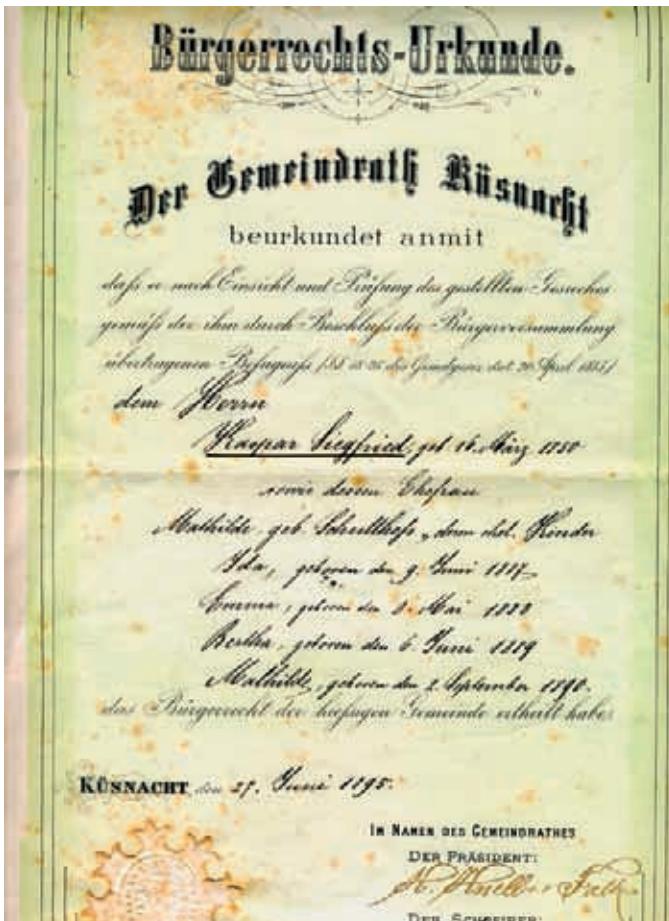 Bürgerrechts-Urkunde.
Der Gemeindrath Küsnacht
beurkundet anmit
daß er nach Einsicht und Prüfung des gestellten Gesuches
gemäß der ihm durch Beschluß der Bürgerversammlung
übertragenen Befugniß
dem Herrn
Kaspar Siegfried, geb. 16. März 1850
sowie dessen Ehefrau
Mathilde, geb. deren ehel. Kinder
Ida, geboren den 9. Juni 1887
Emma, geboren den 8. Mai 1888
Bertha, geboren den 6. Juni 1889
Mathilde, geboren den 2. September 1890.
das Bürgerrecht der hiesigen Gemeinde ertheilt habe.
KÜSNACHT, den 27. Juni 1895.
IM NAMEN DES GEMEINDRATHES
DER PRÄSIDENT:
DER SCHREIBER: